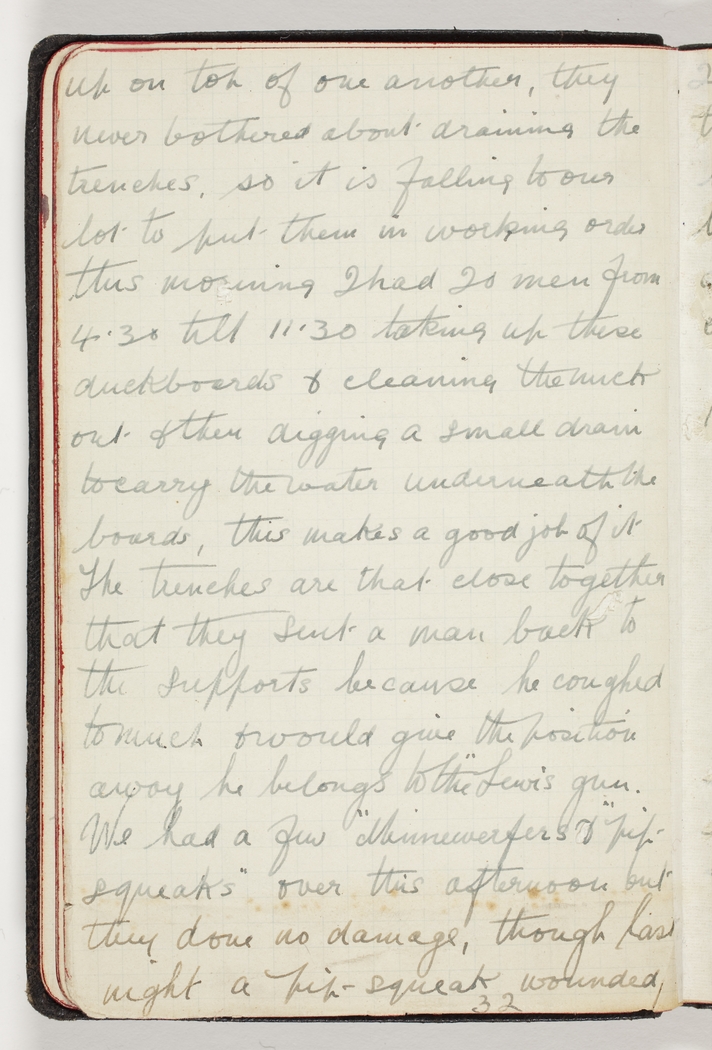 up on top of one another, they
never bothered about draining the
trenches, so it is falling to our
lot to put them in working order
this morning I had 20 men from
4.30 till 11.30 taking up these
duckboards & cleaning the muck
out & then digging a small drain
to carry the water underneath the
boards, this makes a good job of it
The trenches are that close together
that they sent a man back to
the supports because he coughed
to much & would give the position
away he belongs to the "Lewis gun.
We had a few "Minnewerfers" & "pip-
squeaks" over this afternoon but
they done no damage, though last
night a pip-squeak wounded,
32